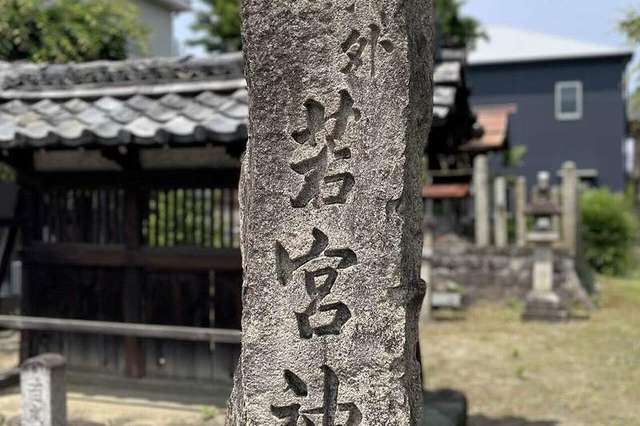 外
若宮神